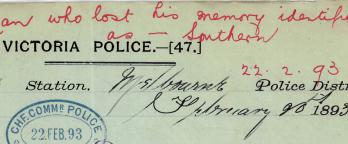 an who lost his memory identifi
as — Southern
VICTORIA POLICE.—[47.]
22. 2. 93
Station. Melbourne Police Distr
February 1893
CHF. COMMR. POLICE
22. FEB. 93